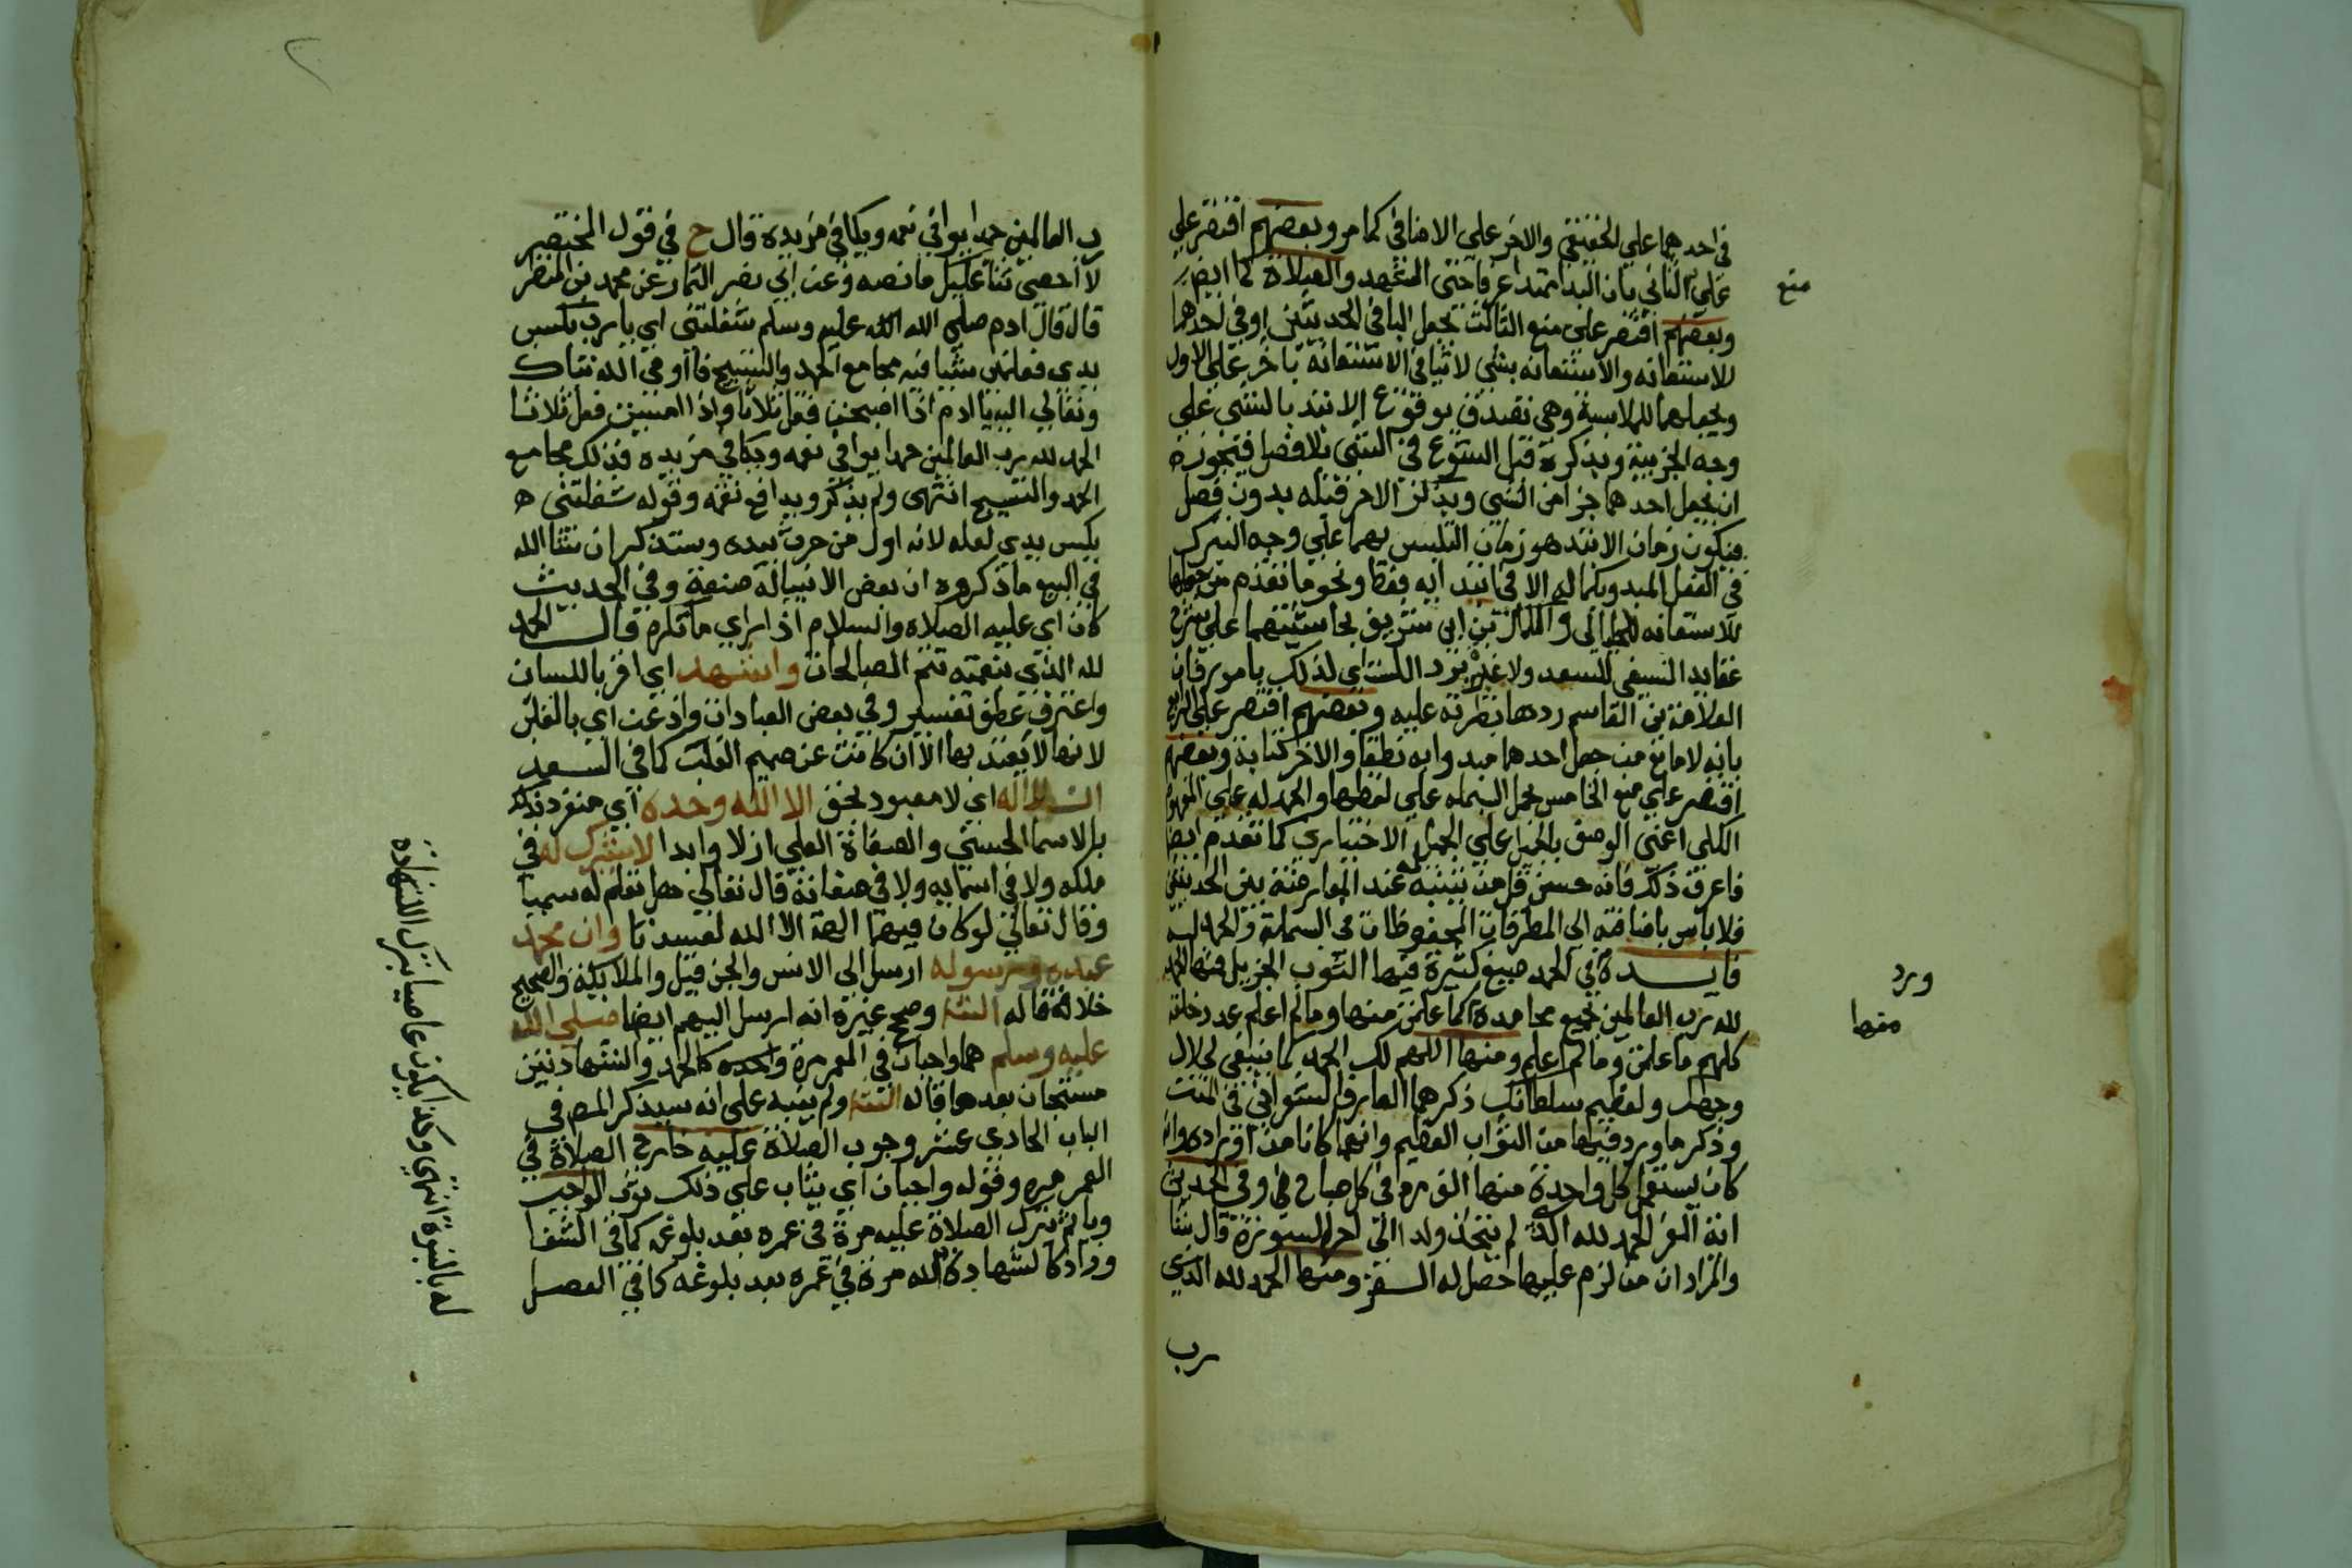 في احدهما علي الحقيقي والاخر علي الاضافي كما مر وبعضهم اقتصر علي
علي الثاني بان البدا ممتد عرفا حتى التشهد والصلاة كما ايضا
منع
وبعضهم اقتصر علي منع الثالث بجعل البا في الحديثين او في احدهما
للاستعانه والاستعانه بشي لا تنافي الاستعانة باخر علي الاول
وبجعلهما للملابسة وهي تصدق بوقوع الابتدا بالشي علي
وجه الجزيية وبذكره قبل الشروع في الشي بلا فصل فيجوز
ان يجعل احدهما جزا من الشي ويذكر الاخر قبله بدون فصل
فيكون زمان الابتدا هو زمان التلبس بهما علي وجه التبرك
في الفعل المبدو بكماله لا في ابتدايه فقط ونحو ما تقدم من جعلها
للاستعانه للخيالي والكمال بن ابي شريف بحاشيتهما علي شرح
عقايد النسفي للسعد ولا غير برد اي لذلك بامور فان
العلامة بن القاسم ردها بطرته عليه وبعضهم اقتصر علي الرابع
بانه لا مانع من جعل احدهما مبدوا به نطقا والاخر كتابة وبعضهم
اقتصر علي منع الخامس بحمل البسمله علي لفظها والحمد له علي المفهوم
الكلي اعني الوصف بالجميل علي الجميل الاختياري كما تقدم ايضا
فاعرف ذلك فانه حسن قل من يتنبه له عند المعارضة بين الحديثين
فلا باس باضافته الي المطرقات المحفوظات في البسملة والحمد له
فايدة في الحمد صيغ كثيرة فيها الثوب الجزيل منها الحمد
ورد
لله رب العالمين بجميع محامده كما علمت منها وما لم اعلم عدد خلقه
منها
كلهم ما علمت وما لم اعلم ومنها اللهم لك الحمد كما ينبغي لجلال
وجهك ولعظيم سلطانك ذكرهما العارف الشعراني في المنن
وذكر ما ورد فيها من الثواب العظيم وانهما كانا من اوراده وانه
كان يستعمل كل واحدة منها الف مرة في كل صباح وفي الحديث
اية العز الحمد لله الذي لم يتخذ ولدا الي اخر السورة قال
والمراد ان من لزم عليها حصل له العز ومنها الحمد لله الذي
رب
رب العالمين حمدا يوافي نعمه ويكافي مزيده قال ح في قول المختصر
لا احصي ثنا عليك ما نصه وعن ابي نصر التمار عن محمد بن النضر
قال قال ادم صلي الله عليه وسلم شغلتني اي يا رب بكسب
يدي فعلمني شيا فيه مجامع الحمد والتسبيح فاوحي الله تبارك
وتعالي اليه يا ادم اذا اصبحت فقل ثلاثا واذا امسيت فقل ثلاثا
الحمد لله رب العالمين حمدا يوافي نعمه ويكافي مزيده فذلك مجامع
الحمد والتسبيح انتهى ولم يذكر ويدافع نقمه وقوله شغلتني
بكسب يدي لعله لانه اول من حرث بيده وستذكر ان شا الله
في البيع ما ذكروه ان بعض الانبيا له صنعة وفي الحديث
كان اي عليه الصلاه والسلام اذا راي ما يكره قال الحمد
لله الذي بنعمته تتم الصالحات واشهد اي اقر باللسان
واعترف عطف تفسير وفي بعض العبارات واذعن اي بالقلب
لانها لا يعتد بها الا ان كانت عن صميم القلب كما في السعد
ان لا اله اي لا معبود بحق الا الله وحده اي منفرد
بالاسما الحسني والصفاة العلي ازلا وابدا لا شريك له في
ملكه ولا في اسمايه ولا في صفاته قال تعالي هل تعلم له سميا
وقال تعالي لو كان فيهما الهة الا الله لفسدتا وان محمد
عبده ورسوله ارسل الي الانس والجن قيل والملايكة والصحيح
خلافه قاله التتا وصحح غيره انه ارسل اليهم ايضا صلي الله
عليه وسلم هما واجبان في العمر مرة واحده كالحمد والشهادتين
مستحبان بعدها قاله التتا ولم ينبه علي انه سيذكر المص في
الباب الحادي عشر وجوب الصلاة عليه خارج الصلاة في
العمر مره وقوله واجبان اي يثاب علي ذلك ثوب الواجب
وياثم بترك الصلاة عليه مرة في عمره بعد بلوغه كما في الشفا
وزاد كالشهادة لله مرة في عمره بعد بلوغه كما في الفصل
له بالنبوة انتهي وكذا يكون عاصيا بترك الشهادة